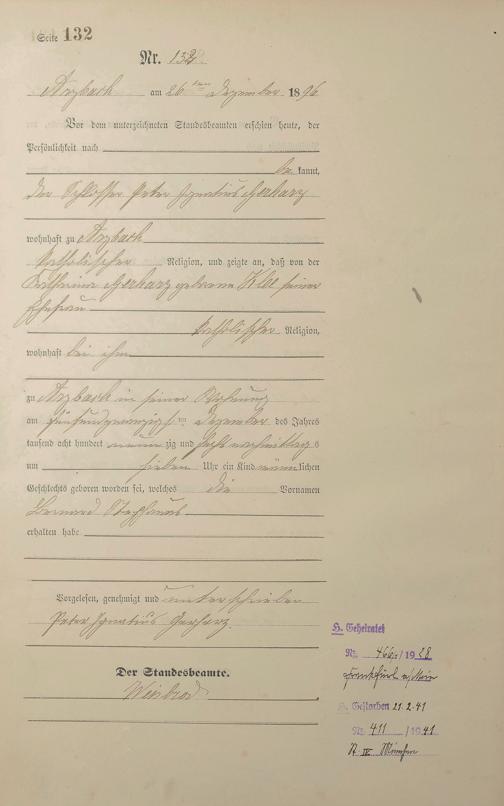 Seite 132
Nr. 132
Arzbach am 26 ten Dezember 1896
Vor dem unterzeichneten Standesbeamten erschien heute, der
Persönlichkeit nach
be kannt,
der Schlosser Peter Ignatius Gerharz
wohnhaft zu Arzbach
katholischer Religion, und zeigte an, daß von der
Katharina Gerharz geborene seiner
Ehefrau
katholischer Religion,
wohnhaft bei ihm
zu Arzbach in seiner Wohnung
am fünfundzwanzigsten Dezember des Jahres
tausend acht hundert neunzig und sechs nachmittags
um sieben Uhr ein Kind männlichen
Geschlechts geboren worden sei, welches die Vornamen
Bernard Stephanus
erhalten habe
Vorgelesen, genehmigt und unterschrieben
Peter Ignatius Gerharz.
Der Standesbeamte.
Weisbrod
H. Geheiratet
Nr. /1928
Frankfurt a/Main
Gestorben 21.2.41
Nr. 411 /1941
IV München